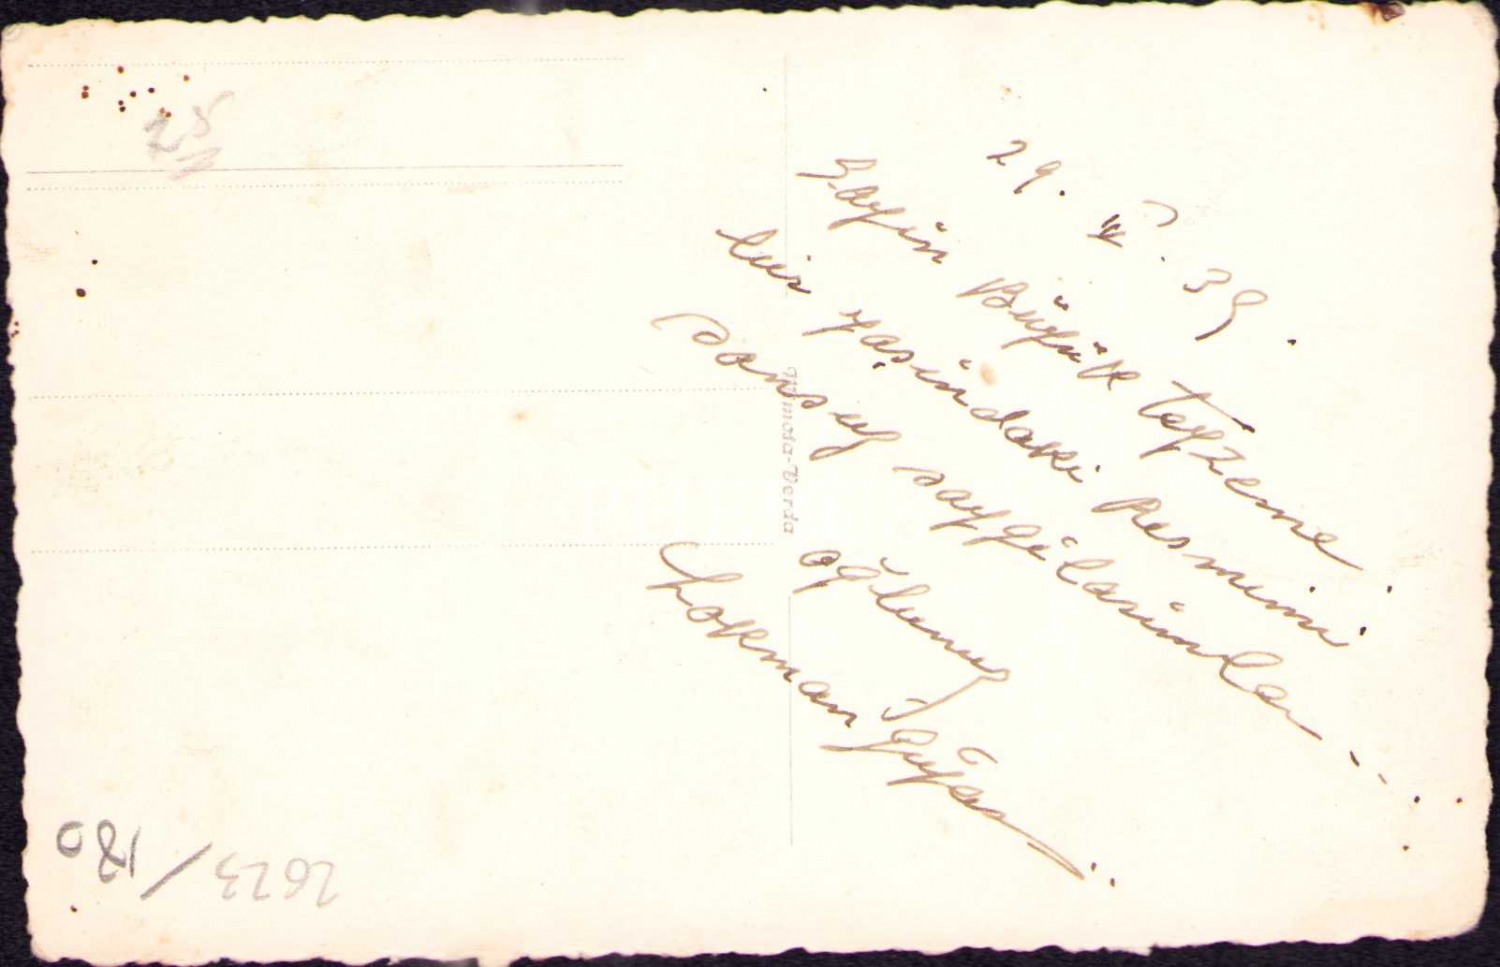 29. VI. 39.
Sayın Büyük teyzeme.
bir yaşındaki Resmimi.
sonsuz saygılarımla...
oğlunuz
Lokman
Mimosa-Verda
25
2623/180